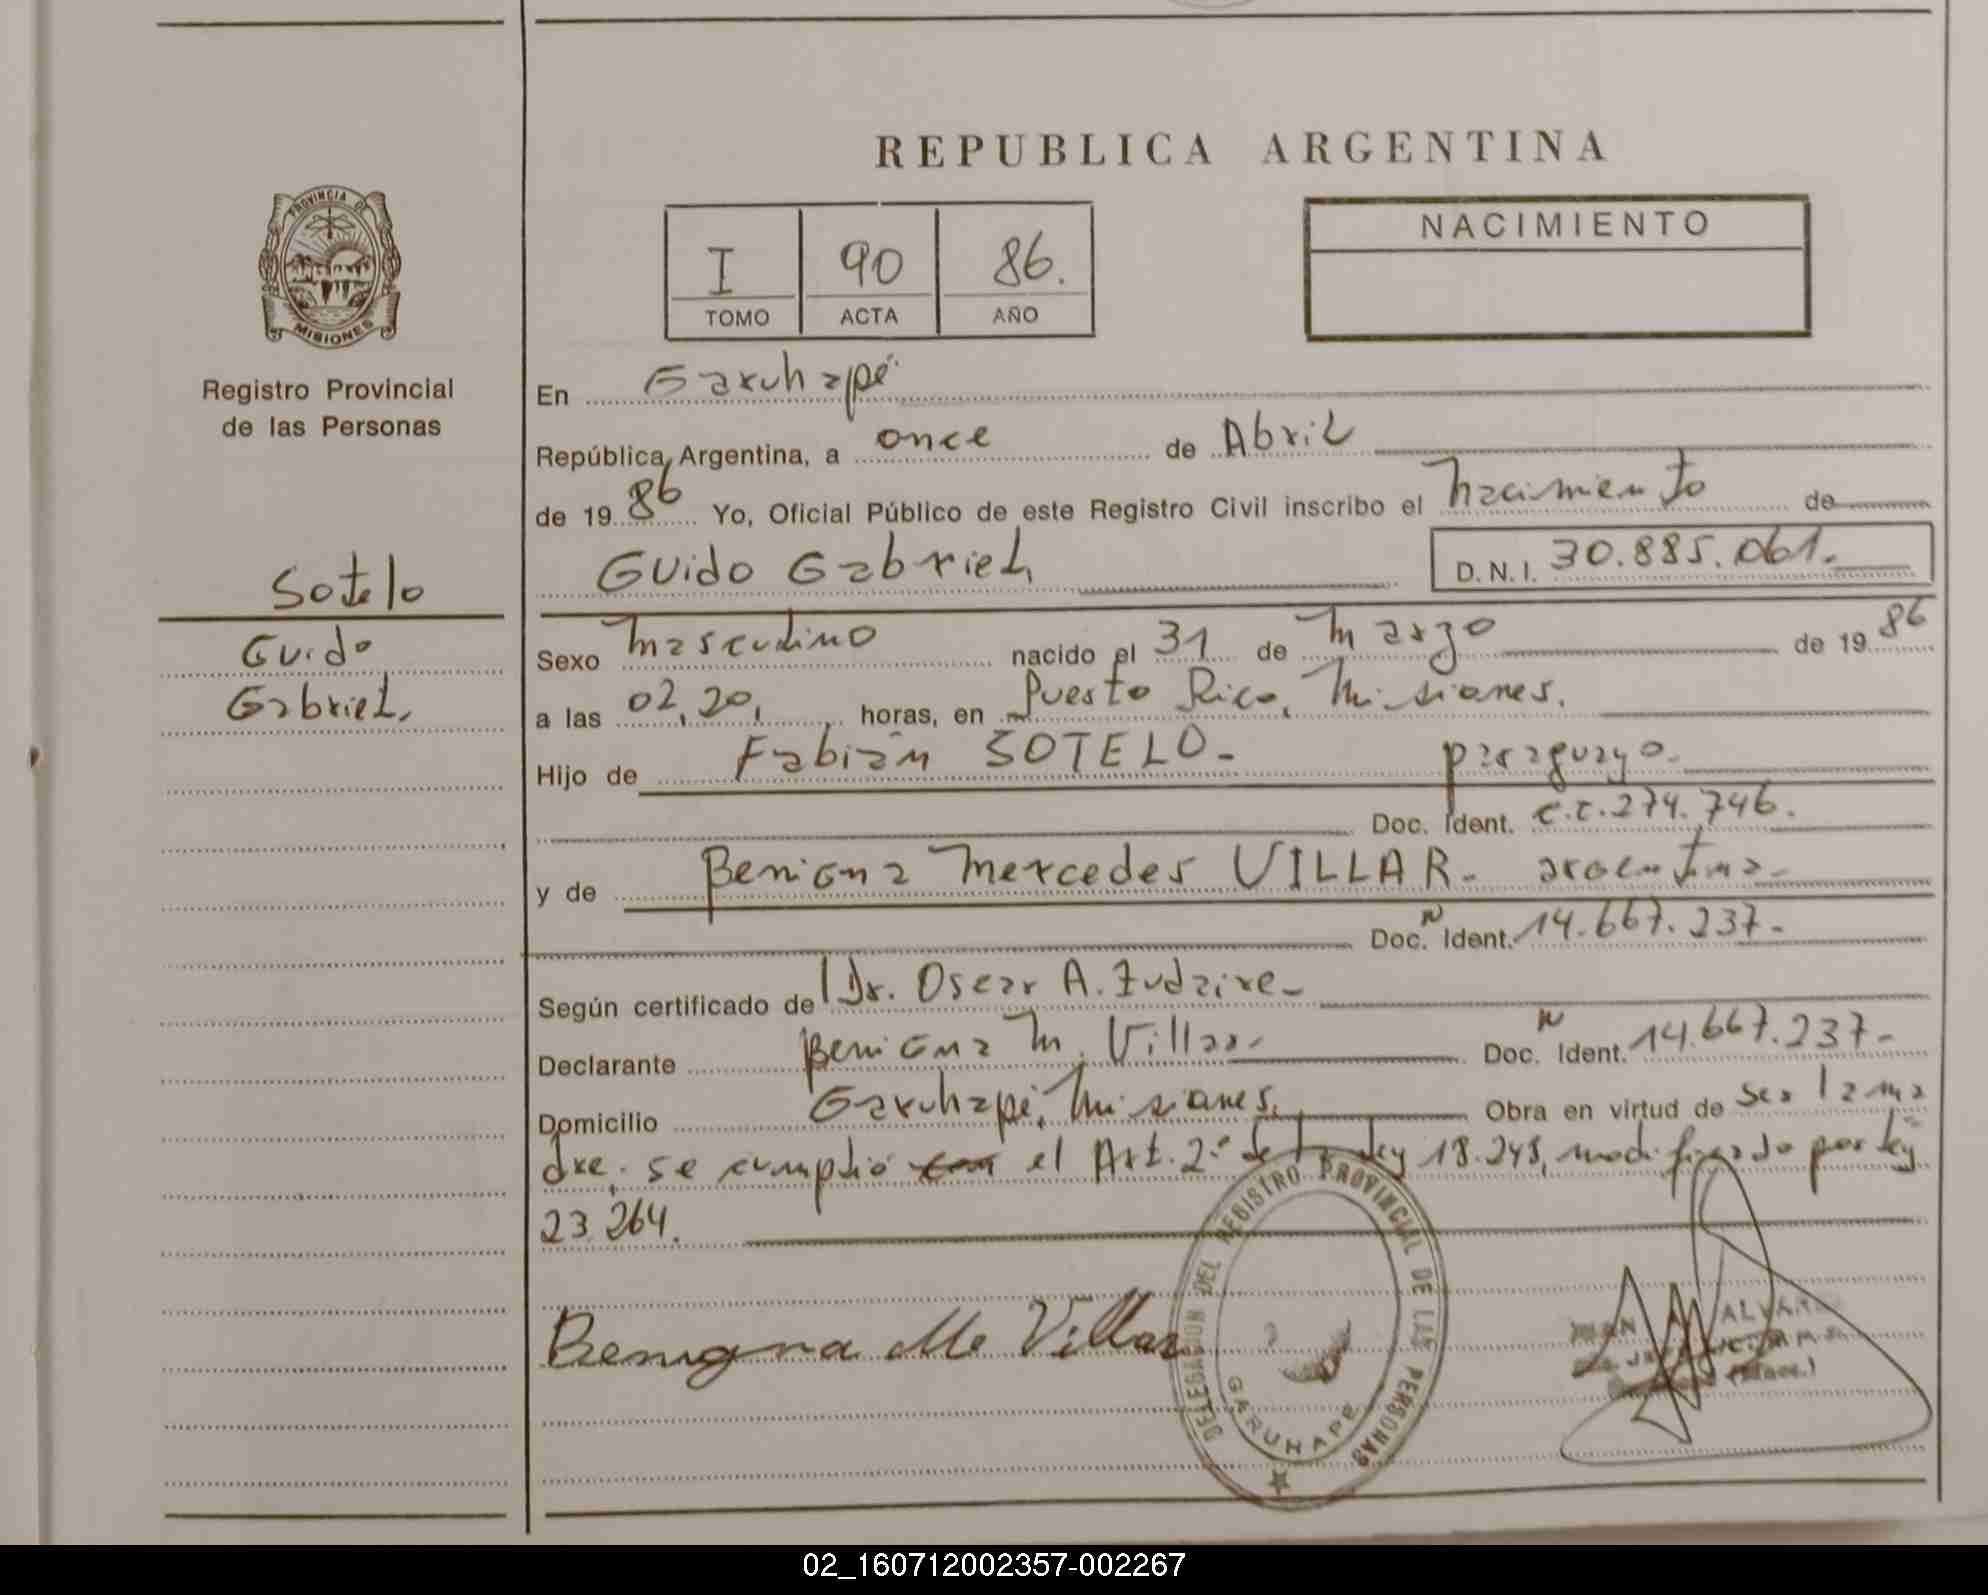 REPUBLICA ARGENTINA
PROVINCIA DE
MISIONES
Registro Provincial
de las Personas
Sotelo
Guido
Gabriel,
I 90 86.
TOMO ACTA AÑO
NACIMIENTO
En Garuhapé
República Argentina, a once de Abril
de 1986 Yo, Oficial Público de este Registro Civil inscribo el nacimiento de
Guido Gabriel D.N.I. 30.885.061.
Sexo masculino nacido el 31 de marzo de 1986
a las 02,20, horas, en Puesto Rico, Misiones.
Hijo de Fabián SOTELO- paraguayo-
Doc. Ident. C.I. 274.746.
y de Benigna Mercedes VILLAR- argentina-
Doc. Ident. 14.667.237-
Según certificado de Dr. Oscar A.
Declarante Benigna M. Villar- Doc. Ident. 14.667.237-
Domicilio Garuhapé, Misiones. Obra en virtud de ser la ma
dre. se cumplió con el Art. 2º de la ley 18.248, modificado por ley
23.264.
Benigna Me Villar
DELEGACION DEL REGISTRO PROVINCIAL DE LAS PERSONAS
GARUHAPE
02_160712002357-002267